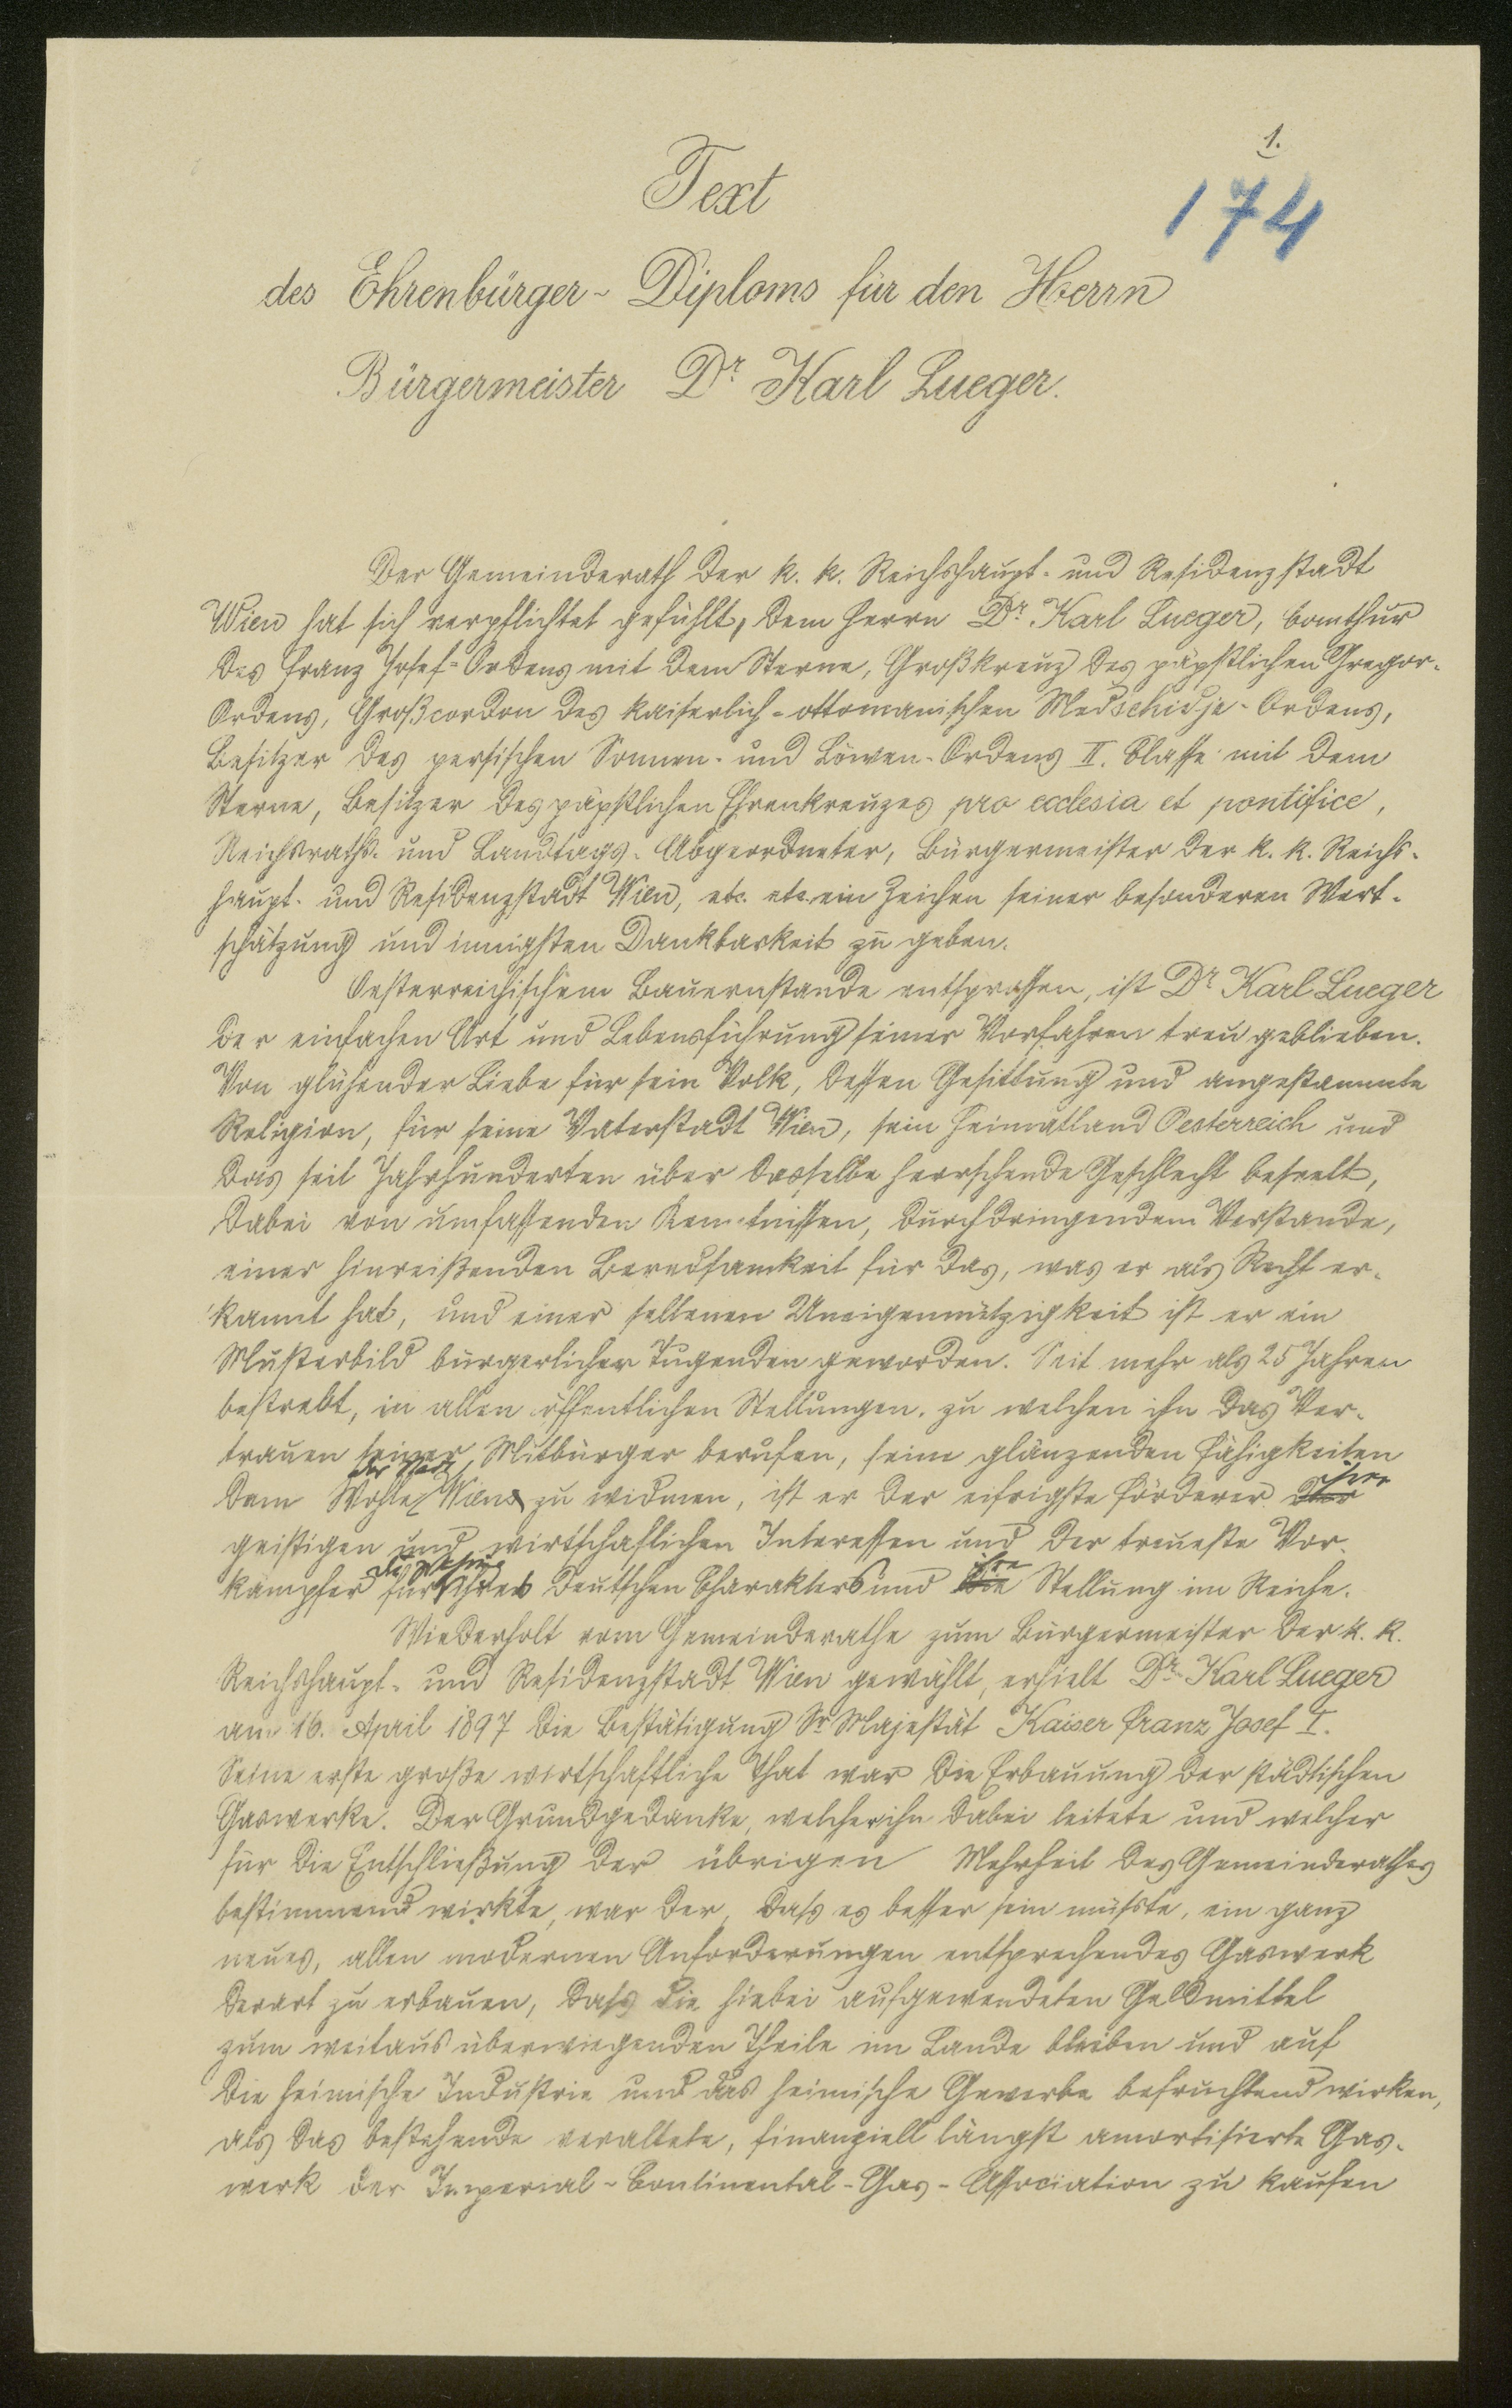 1.
174
Text
des Ehrenbürger- Diploms für den Herrn
Bürgermeister Dr Karl Lueger.
Der Gemeinderath der k. k. Reichshaupt- und Residenzstadt
Wien hat sich verpflichtet gefühlt, dem Herrn Dr. Karl Lueger, Comthur
des Franz Josef-Ordens mit dem Sterne, Großkreuz des päpstlichen Gregor-
Ordens, Großcordon des kaiserlich-ottomanischen Medschidje-Ordens,
Besitzer des persischen Sonnen- und Löwen-Ordens II. Classe mit dem
Sterne, Besitzer des päpstlichen Ehrenkreuzes pro ecclesia et pontifice,
Reichsraths- und Landtags-Abgeordneter, Bürgermeister der k. k. Reichs-
haupt- und Residenzstadt Wien, etc. etc. ein Zeichen seiner besonderen Wert-
schätzung und innigsten Dankbarkeit zu geben.
Oesterreichischem Bauernstande entsprossen, ist Dr Karl Lueger
der einfachen Art und Lebensführung seiner Vorfahren treu geblieben.
Von glühender Liebe für sein Volk, dessen Gesittung und angestammte
Religion, für seine Vaterstadt Wien, sein Heimatland Oesterreich und
das seit Jahrhunderten über dasselbe herrschende Geschlecht beseelt,
dabei von umfassenden Kenntnissen, durchdringendem Verstande,
einer hinreißenden Beredsamkeit für das, was er als Recht er-
kannt hat, und einer seltenen Uneigennützigkeit ist er ein
Musterbild bürgerlicher Tugenden geworden. Seit mehr als 25 Jahren
bestrebt, in allen öffentlichen Stellungen, zu welchen ihn das Ver-
trauen seiner Mitbürger berufen, seine glänzenden Fähigkeiten
der Stadt
dem Wohle Wiens zu widmen, ist er der eifrigste Förderer ihrer
geistigen und wirtschaftlichen Interessen und der treueste Vor-
kämpfer für ihres deutschen Charakters und ihre Stellung im Reiche.
Wiederholt vom Gemeinderathe zum Bürgermeister der k. k.
Reichshaupt- und Residenzstadt Wien gewählt, erhielt Dr. Karl Lueger
am 16. April 1897 die Bestätigung Sr Majestät Kaiser Franz Josef I.
Seine erste große wirtschaftliche That war die Erbauung der städtischen
Gaswerke. Der Grundgedanke, welcher ihn dabei leitete und welcher
für die Entschließung der übrigen Mehrheit des Gemeinderathes
bestimmend wirkte, war der, dass es besser sein müsste, ein ganz
neues, allen modernen Anforderungen entsprechendes Gaswerk
derart zu erbauen, dass die hiebei aufgewendeten Geldmittel
zum weitaus überwiegenden Theile im Lande bleiben und auf
die heimische Industrie und das heimische Gewerbe befruchtend wirken,
als das bestehende veraltete, finanziell längst amortisierte Gas-
werk der Imperial-Continental-Gas-Association zu kaufen